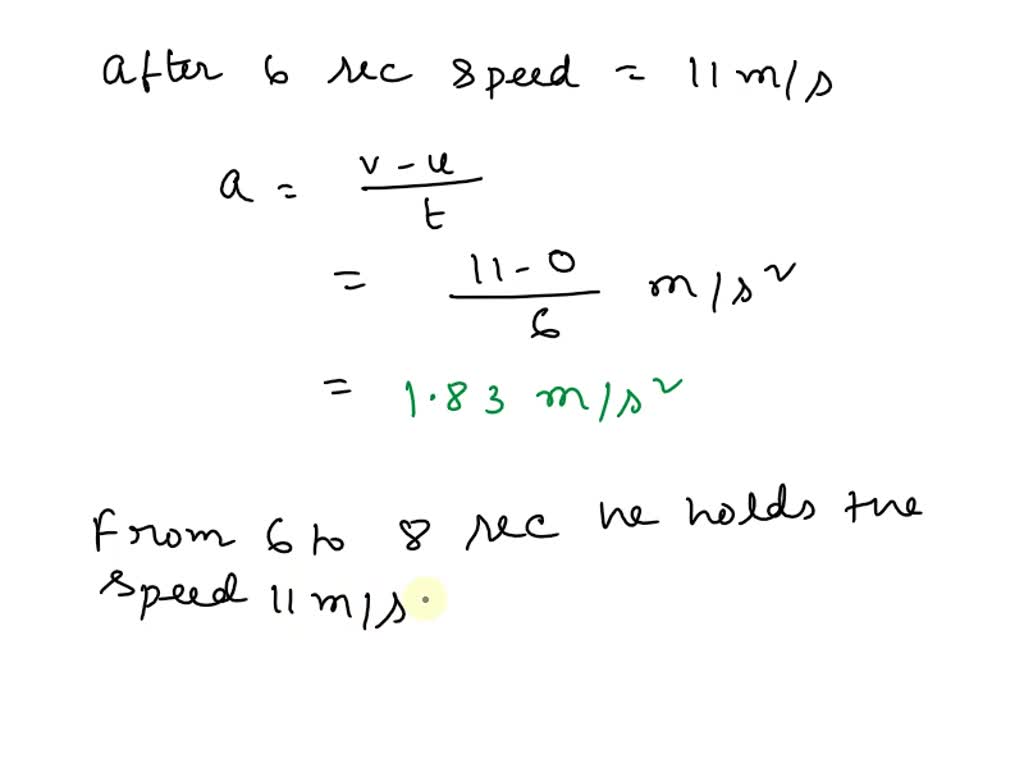 After 6 sec speed = 11 m/s
a = v - u / t
= 11 - 0 / 6 m/s²
= 1.83 m/s²
From 6 to 8 sec he holds the
speed 11 m/s